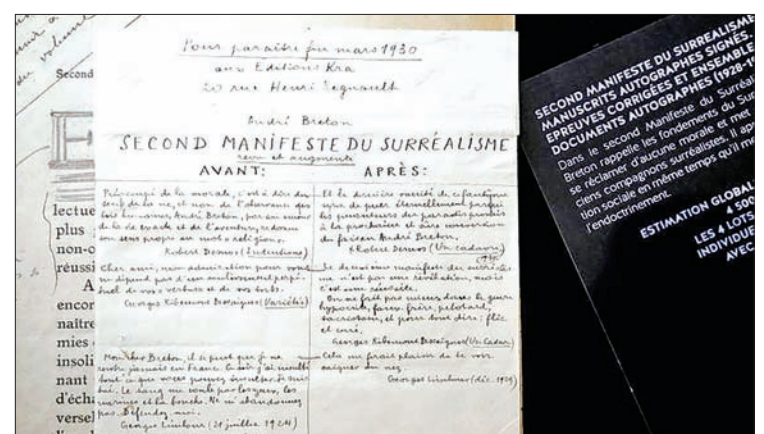 Second
lectue
plus ;
non-o
réussi
A
encor
naître
mies
insoli
nant
d'écha
versel
Pour paraître fin mars 1930
aux Editions Kra
20 rue Henri Regnault
André Breton
SECOND MANIFESTE DU SURRÉALISME
revu et augmenté
AVANT:
Préoccupé de la morale, c'est à dire du
sens de la vie, et non de l'observance des
lois humaines, André Breton, par son amour
de la vie exacte et de l'aventure, redonne
son sens propre au mot religion.
Robert Desnos (Intentions)
Cher ami, mon admiration pour vous
ne dépend pas d'un
de vos vertus et de vos torts.
Georges Ribemont Dessaignes (Variétés)
Mon cher Breton, il se peut que je ne
rentre jamais en France. Ce soir j'ai insulté
tout ce que vous pouvez insulter. Je suis
tué. Le sang me coule par les yeux, les
narines et la bouche. Ne m'abandonnez
pas. Défendez-moi.
Georges Limbour (21 juillet 1924)
APRÈS:
Et la dernière vanité de ce fantôme
sera de puer éternellement parmi
les puanteurs du paradis promis
à la prochaine et sûre conversion
du faisan André Breton.
Robert Desnos (Un cadavre
1930)
Le deuxième manifeste du surréalis-
me n'est pas une révélation, mais
c'est une réussite.
On ne fait pas mieux dans le genre
hypocrite, faux-frère, pelotard,
sacristain, et pour tout dire : flic
et curé.
Georges Ribemont Dessaignes (Un Cadav.)
Cela me ferait plaisir de te voir
saigner du nez.
Georges Limbour (déc. 1929)
SECOND MANIFESTE DU SURREALISME
MANUSCRITS AUTOGRAPHES SIGNÉS.
EPREUVES CORRIGÉES ET ENSEMBLE
DOCUMENTS AUTOGRAPHES (1928-19
Dans le second Manifeste du Surréal
Breton rappelle les fondements du Sur
se réclamer d'aucune morale et met
ciens compagnons surréalistes. Il app
tion sociale en même temps qu'il me
l'endoctrinement.
ESTIMATION GLOBAL
4 500
LES 4 LOTS
INDIVIDUE
AVEC